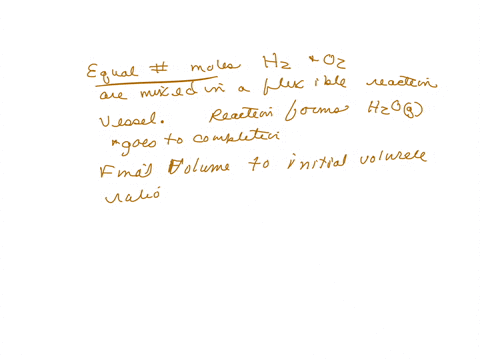 Equal # moles H2 + O2
are mixed in a flexible reaction
vessel. Reaction forms H2O(g)
*goes to completion
Final Volume to initial volume
ratio